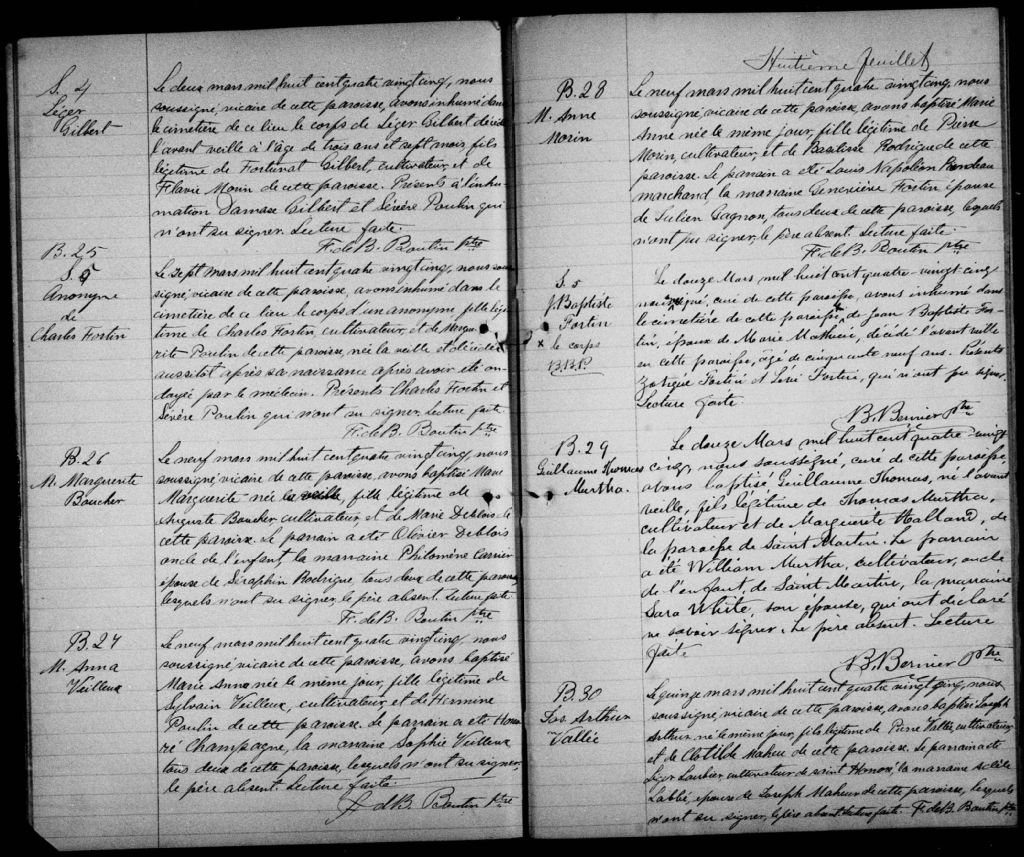 S. 4
Léger
Gilbert
Le deux mars mil huit cent quatre vingt cinq, nous
soussigné, vicaire de cette paroisse, avons inhumé dans
le cimetière de ce lieu le corps de Léger Gilbert décédé
l'avant veille à l'âge de trois ans et sept mois, fils
légitime de Fortunat Gilbert, cultivateur, et de
Flavie Morin de cette paroisse. Présents à l'inhu-
mation Damase Gilbert et Sévère Poulin qui
n'ont su signer. Lecture faite.
F. de B. Boutin Ptre
B. 25
S. 5
Anonyme
de
Charles Fortin
Le sept mars mil huit cent quatre vingt cinq, nous sous
signé, vicaire de cette paroisse, avons inhumé dans le
cimetière de ce lieu le corps d'un anonyme, fille légi
time de Charles Fortin cultivateur, et de Margue
rite Poulin de cette paroisse, née la veille et décédée
aussitôt après sa naissance après avoir été on-
doyée par le médecin. Présents Charles Fortin et
Sévère Poulin qui n'ont su signer. Lecture faite.
F. de B. Boutin Ptre
B. 26
M. Marguerite
Boucher
Le neuf mars mil huit cent quatre vingt cinq, nous
soussigné vicaire de cette paroisse, avons baptisé Marie
Marguerite née la veille, fille légitime de
Auguste Boucher cultivateur, et de Marie Deblois de
cette paroisse. Le parrain a été Olivier Deblois
oncle de l'enfant, la marraine Philomène Carrier
épouse de Séraphin Rodrigue, tous deux de cette paroisse
lesquels n'ont su signer, le père absent. Lecture faite
F. de B. Boutin Ptre
B. 27
M. Anna
Veilleux
Le neuf mars mil huit cent quatre vingt cinq, nous
soussigné vicaire de cette paroisse, avons baptisé
Marie Anna née le même jour, fille légitime de
Sylvain Veilleux, cultivateur, et de Hermine
Poulin de cette paroisse. Le parrain a été Hono
ré Champagne, la marraine Sophie Veilleux
tous deux de cette paroisse, lesquels n'ont su signer,
le père absent. Lecture faite
F. de B. Boutin Ptre
Huitième feuillet
B. 28
M. Anne
Morin
Le neuf mars mil huit cent quatre vingt cinq, nous
soussigné, vicaire de cette paroisse, avons baptisé Marie
Anne née le même jour, fille légitime de Pierre
Morin, cultivateur, et de Basilisse Rodrigue de cette
paroisse. Le parrain a été Louis Napoléon Rondeau
marchand, la marraine Geneviève Fortin épouse
de Julien Gagnon, tous deux de cette paroisse, lesquels
n'ont pu signer, le père absent. Lecture faite.
F. de B. Boutin Ptre
S. 5
J. Baptiste
Fortin
x le corps
B.B.P.
Le douze Mars, mil huit cent quatre vingt cinq
soussigné, curé de cette paroisse, avons inhumé dans
le cimetière de cette paroisse x de Jean Baptiste For-
tin, époux de Marie Mathieu, décédé l'avant veille
en cette paroisse, âgé de cinquante neuf ans. Présents
Zotique Fortin et Lévi Fortin, qui n'ont pu signer.
Lecture faite.
B. Bernier Ptre
B. 29
Guillaume Thomas
Murtha.
Le douze Mars mil huit cent quatre-vingt
cinq, nous soussigné, curé de cette paroisse,
avons baptisé Guillaume Thomas, né l'avant
veille, fils légitime de Thomas Murtha,
cultivateur et de Marguerite Holland, de
la paroisse de Saint Martin. Le parrain
a été William Murtha, cultivateur, oncle
de l'enfant, de Saint Martin, la marraine
Sara White, son épouse, qui ont déclaré
ne savoir signer. Le père absent. Lecture
faite
B. Bernier Ptre
B. 30
Jos. Arthur
Vallée
Le quinze mars mil huit cent quatre vingt cinq, nous
soussigné, vicaire de cette paroisse, avons baptisé Joseph
Arthur né le même jour, fils légitime de Pierre Vallée, cultivateur
et de Clotilde Maheu de cette paroisse. Le parrain a été
Léger cultivateur de saint Honoré, la marraine
Labbé, épouse de Joseph Maheu de cette paroisse, lesquels
n'ont su signer, le père absent. Lecture faite. F. de B. Boutin Ptre